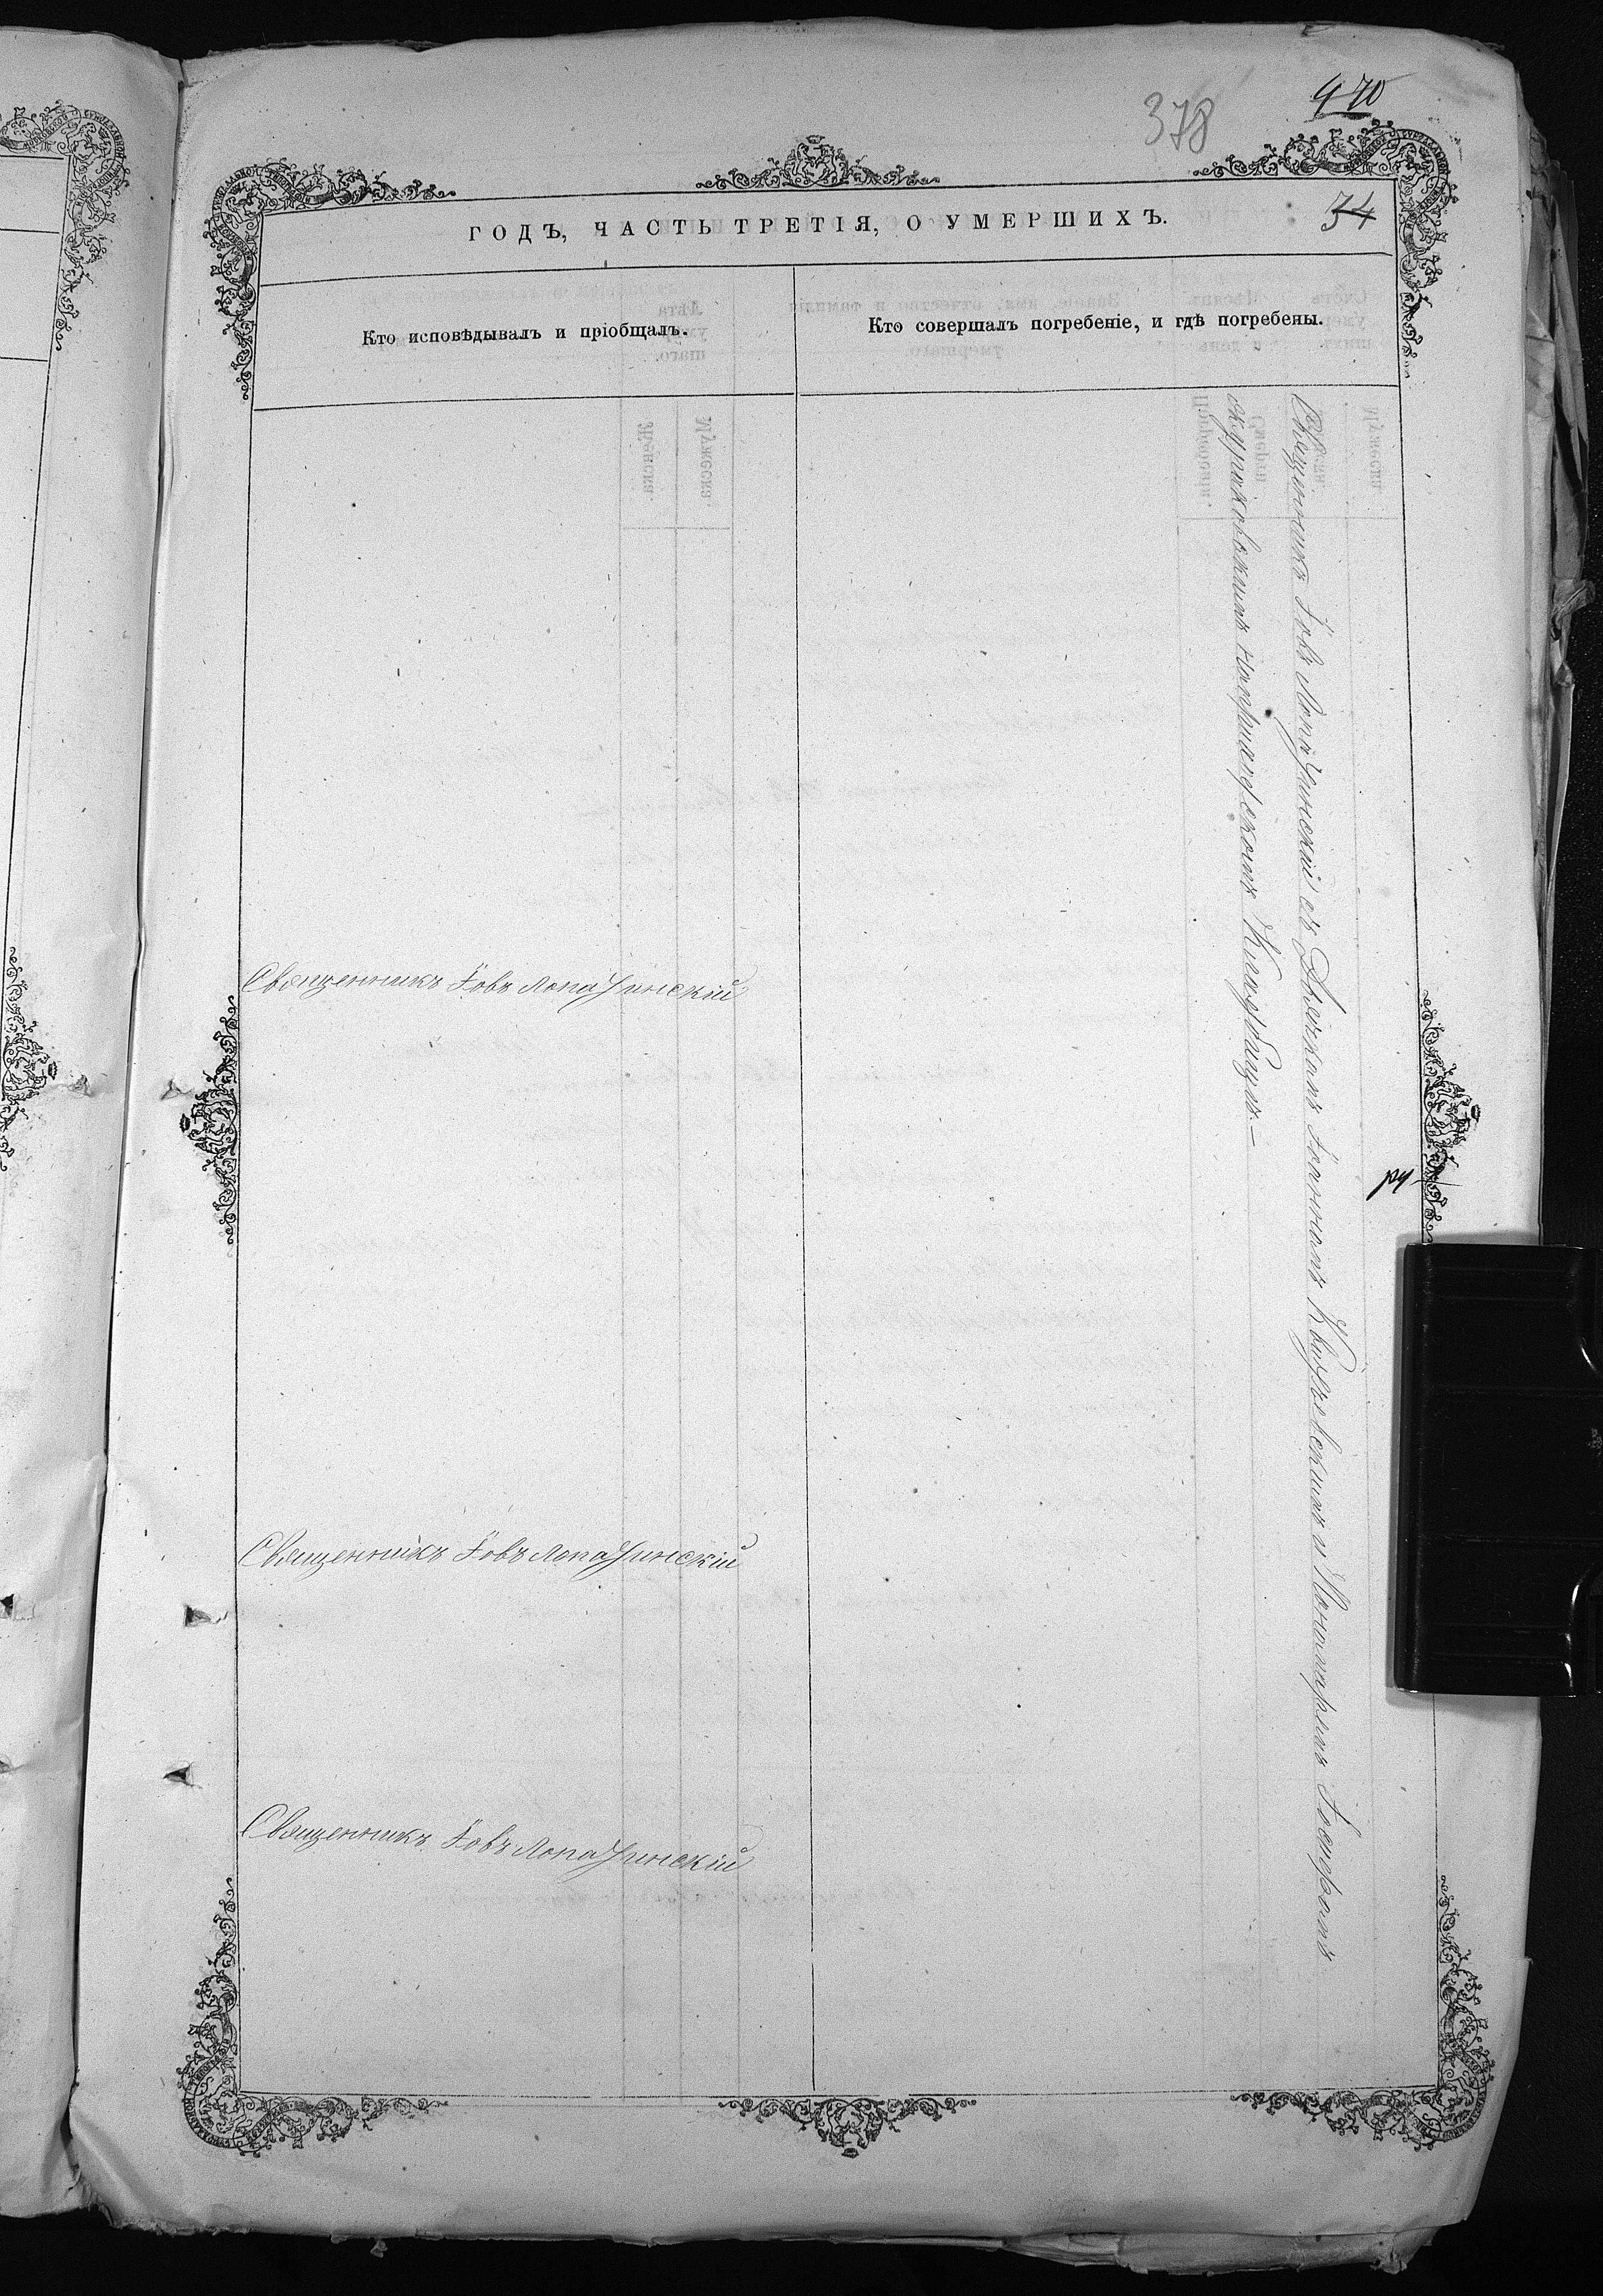 470
378
34
ГОДЪ, ЧАСТЬ ТРЕТІЯ, О УМЕРШИХЪ.
Кто исповѣдывалъ и пріобщалъ.
Кто совершалъ погребеніе, и гдѣ погребены.
Священникъ Іовъ Лопатинскій
Священникъ Іовъ Лопатинскій
Священникъ Іовъ Лопатинскій
Священникъ Іовъ Лопатинскій съ Дьячкомъ Іоанномъ и Пономаремъ
на приходскомъ Кладбищѣ.—